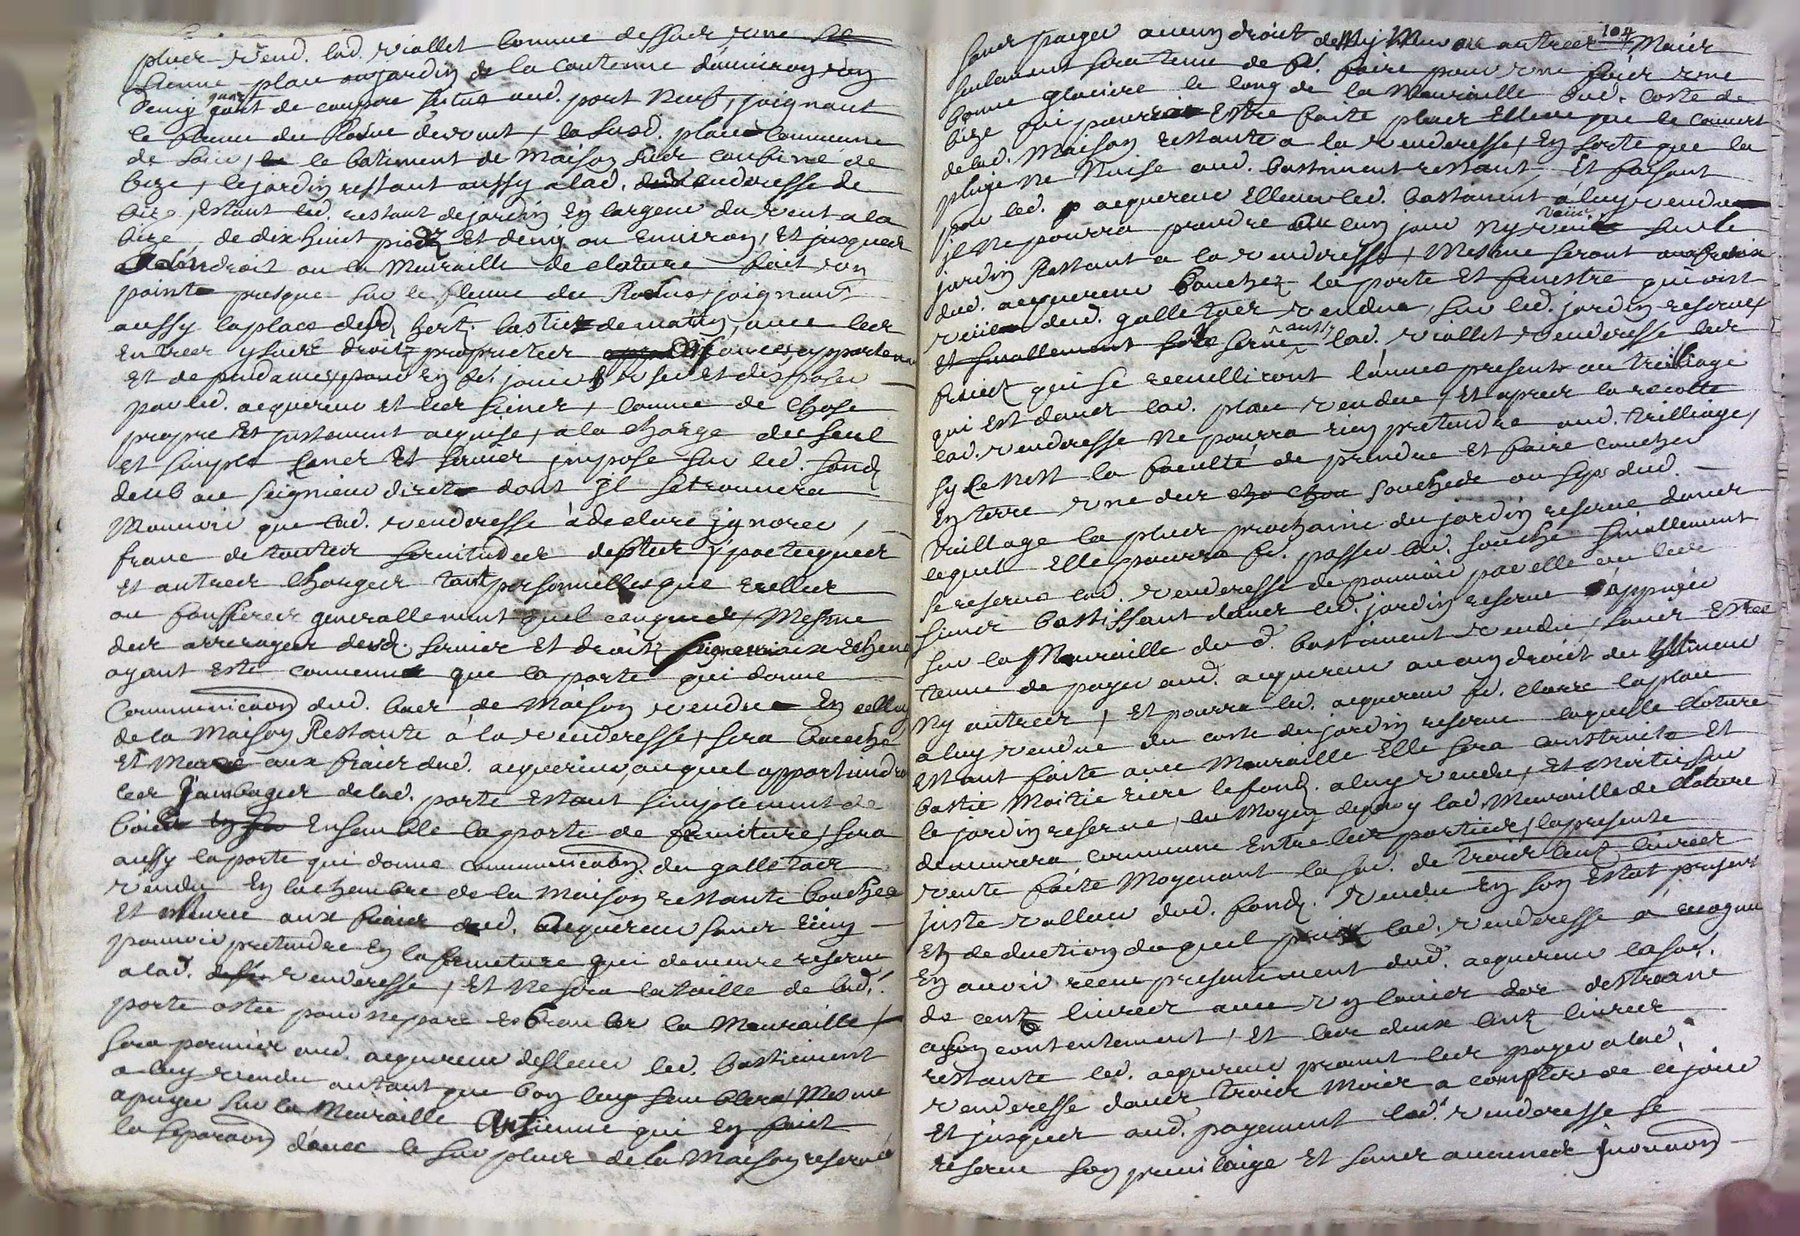 plus vend lad. viallet comme dessus une
sienne place ou jardin de la contenue d'environ un
demy quart de coupée situé aud. port neuf, joignant
le fleuve du Rosne devant, la susd. place commune
de soir, le batiment de maison sus confiné de
bize, le jardin restant aussy a lad. venderesse de
bize, estant led. restant de jardin en largeur du vent a la
bize de dix huict piedz et demy ou environ, et jusques
a l'endroit ou la muraille de cloture fait son
pointe presque sur le fleuve du Rosne, joignant
aussy la place desd. hert. bastie de matin, avec les
entrees ysues droitz proprietes apparte
et dependances, pour en fe. jouir user et disposer
par led. acquereur et les siens, comme de chose
propre et justement acquise, a la charge du seul
et simple cens et servis imposé sur led. fond
deub au seigneur direct dont il se trouvera
mouvoir que lad. venderesse a declaré ignorer,
franc de toutes servitudes
et autres charges tant personnelles que reelles
ou fonsieres generallement quelconques, mesme
des arrerages desd. servis et droitz seigneuriaux
ayant esté convenu que la porte qui donne
communicaon dud. bas de maison vendue en celluy
de la maison restante à la venderesse, sera bouchée
et murée aux frais dud. acquereur, auquel appartiendra
les jambages de lad. porte estant simplement de
bois ensemble la porte de fermeture, sera
aussy la porte qui donne communication du galletas
vendu en la chambre de la maison restante bouchée
et murée aux frais dud. acquereur sans rien
pouvoir pretendre en la fermeture qui demeure reservé
a lad. venderesse, et ne sera la taille de lad.
porte ostée pour ne pas esbranler la muraille,
sera permis aud. acquereur d'eslever led. bastiment
a luy vendu autant que bon luy semblera, mesme
apuyer sur la muraille antienne qui en fait
la separaon d'avec le surplus de la maison reservé
104
sans payer aucun droit de my mur ou autres, mais
seulement sera tenu de fe. faire pour une fois une
bonne glaciere le long de la muraille dud. costé de
bize qui pourra estre faite plus eslevé que le couvert
de lad. maison restante a la venderesse, en sorte que la
pluye ne nuise aud. bastiment restant. Et faisant
par led. acquereur eslever led. bastiment a luy vendu
il ne pourra prendre aucun jour ny veüe sur le
jardin restant a la venderesse, mesme seront aux frais
dud. acquereur bouchez la porte et fenestre qui ont
veüe dud. galletas vendu, sur led. jardin reservé
lad. viallet venderesse les
fruictz qui se recuilliront l'année presente au treillage
qui est dans lad. place vendue, et apres la recolte
lad. venderesse ne pourra rien pretendre aud. trilliage,
sy ce n'est la faculté de prendre et faire coucher
en terre une des souches ou seps dud.
treillage la plus prochaine du jardin reservé dans
lequel elle pourra fe. passer lad. souche finallement
se reserve lad. venderesse de pouvoir par elle ou les
siens bastissant dans led. jardin reservé appuyer
sur la muraille dud. bastiment vendu, sans estre
tenue de payer aud. acquereur aucun droit de my mur
ny autres, et pourra led. acquereur fe. clorre la place
a luy vendue du costé du jardin reservé laquelle cloture
estant faite avec muraille elle sera construite et
bastie moitié riere le fond. a luy vendu, et moitié sur
le jardin reservé, au moyen dequoy lad. muraille de cloture
demeurera commune entre les parties, la presente
vente faite moyenant la so. de trois cent livres
juste valleur dud. fond. vendu en son estat present
en deduction duquel prix lad. venderesse a recognu
en avoir receu presentement dud. acquereur la so.
de cent livres avec un louis d'or d'estraine
a son contentement, et les deux cent livres
restante led. acquereur promet les payer a lad.
venderesse dans trois mois a compter de ce jour
et jusques aud. payement lad. venderesse se
reserve son privilaige et sans aucunes jnovaon